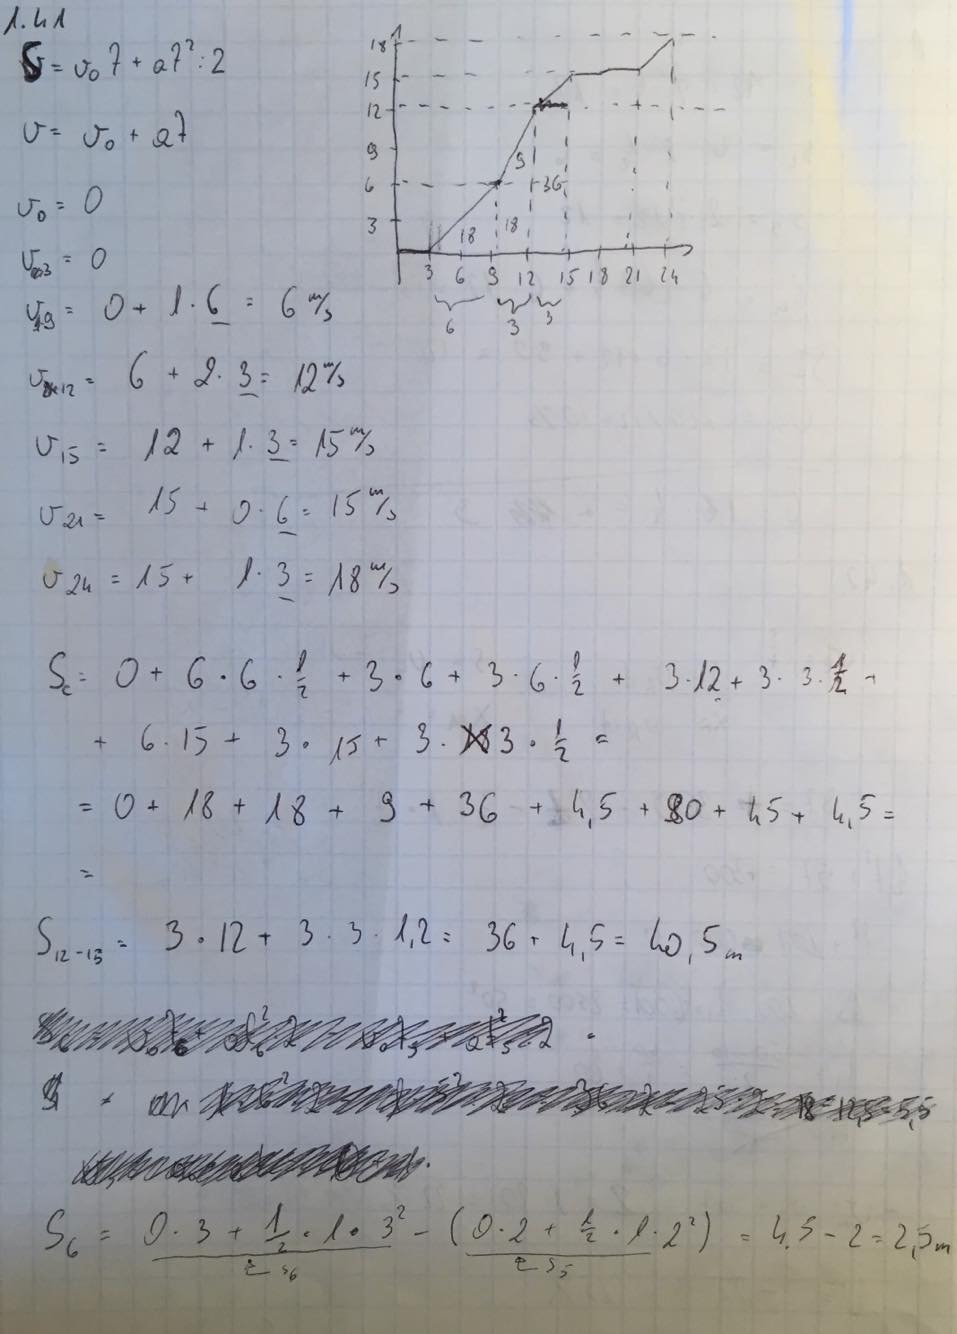 1.41
S = v₀t + at² : 2
v = v₀ + at
v₀ = 0
v₃ = 0
v₉ = 0 + 1 · 6 = 6 m/s
v₁₂ = 6 + 2 · 3 = 12 m/s
v₁₅ = 12 + 1 · 3 = 15 m/s
v₂₁ = 15 + 0 · 6 = 15 m/s
v₂₄ = 15 + 1 · 3 = 18 m/s
18
15
12
9
6
3
9
36
18 18
3 6 9 12 15 18 21 24
6 3 3
S_c = 0 + 6 · 6 · 1/2 + 3 · 6 + 3 · 6 · 1/2 + 3 · 12 + 3 · 3 · 1/2 +
+ 6 · 15 + 3 · 15 + 3 · 3 · 1/2 =
= 0 + 18 + 18 + 9 + 36 + 4,5 + 90 + 45 + 4,5 =
=
S₁₂₋₁₅ = 3 · 12 + 3 · 3 · 1,2 = 36 + 4,5 = 40,5 m
S₆ = 0 · 3 + 1/2 · 1 · 3² - (0 · 2 + 1/2 · 1 · 2²) = 4,5 - 2 = 2,5 m
Σ S₆ Σ S₅